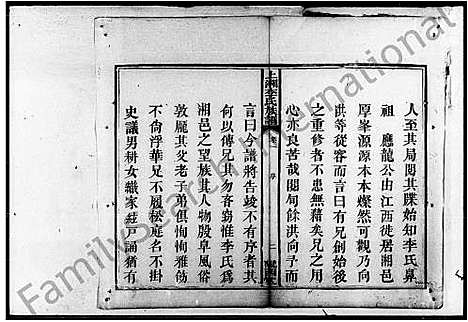 人至其局閱其牒始知李氏鼻
祖 應龍公由江西徙居湘邑
厚峯源源本本燦然可觀乃向
洪等從容而言曰有兄創始後
之重修者不患無藉矣兄之用
心亦良苦哉閱旬餘洪向予而
上湘李氏族譜
卷
序
二
言曰今譜將告竣不可無序者其
何以傳兄其勿吝竊惟李氏為
湘邑之望族其人物殷阜風俗
敦龐其父老子弟俱恂恂雅飭
不尙浮華足不履訟庭名不掛
史議男耕女織家絃戶誦猶有
FamilySearch International